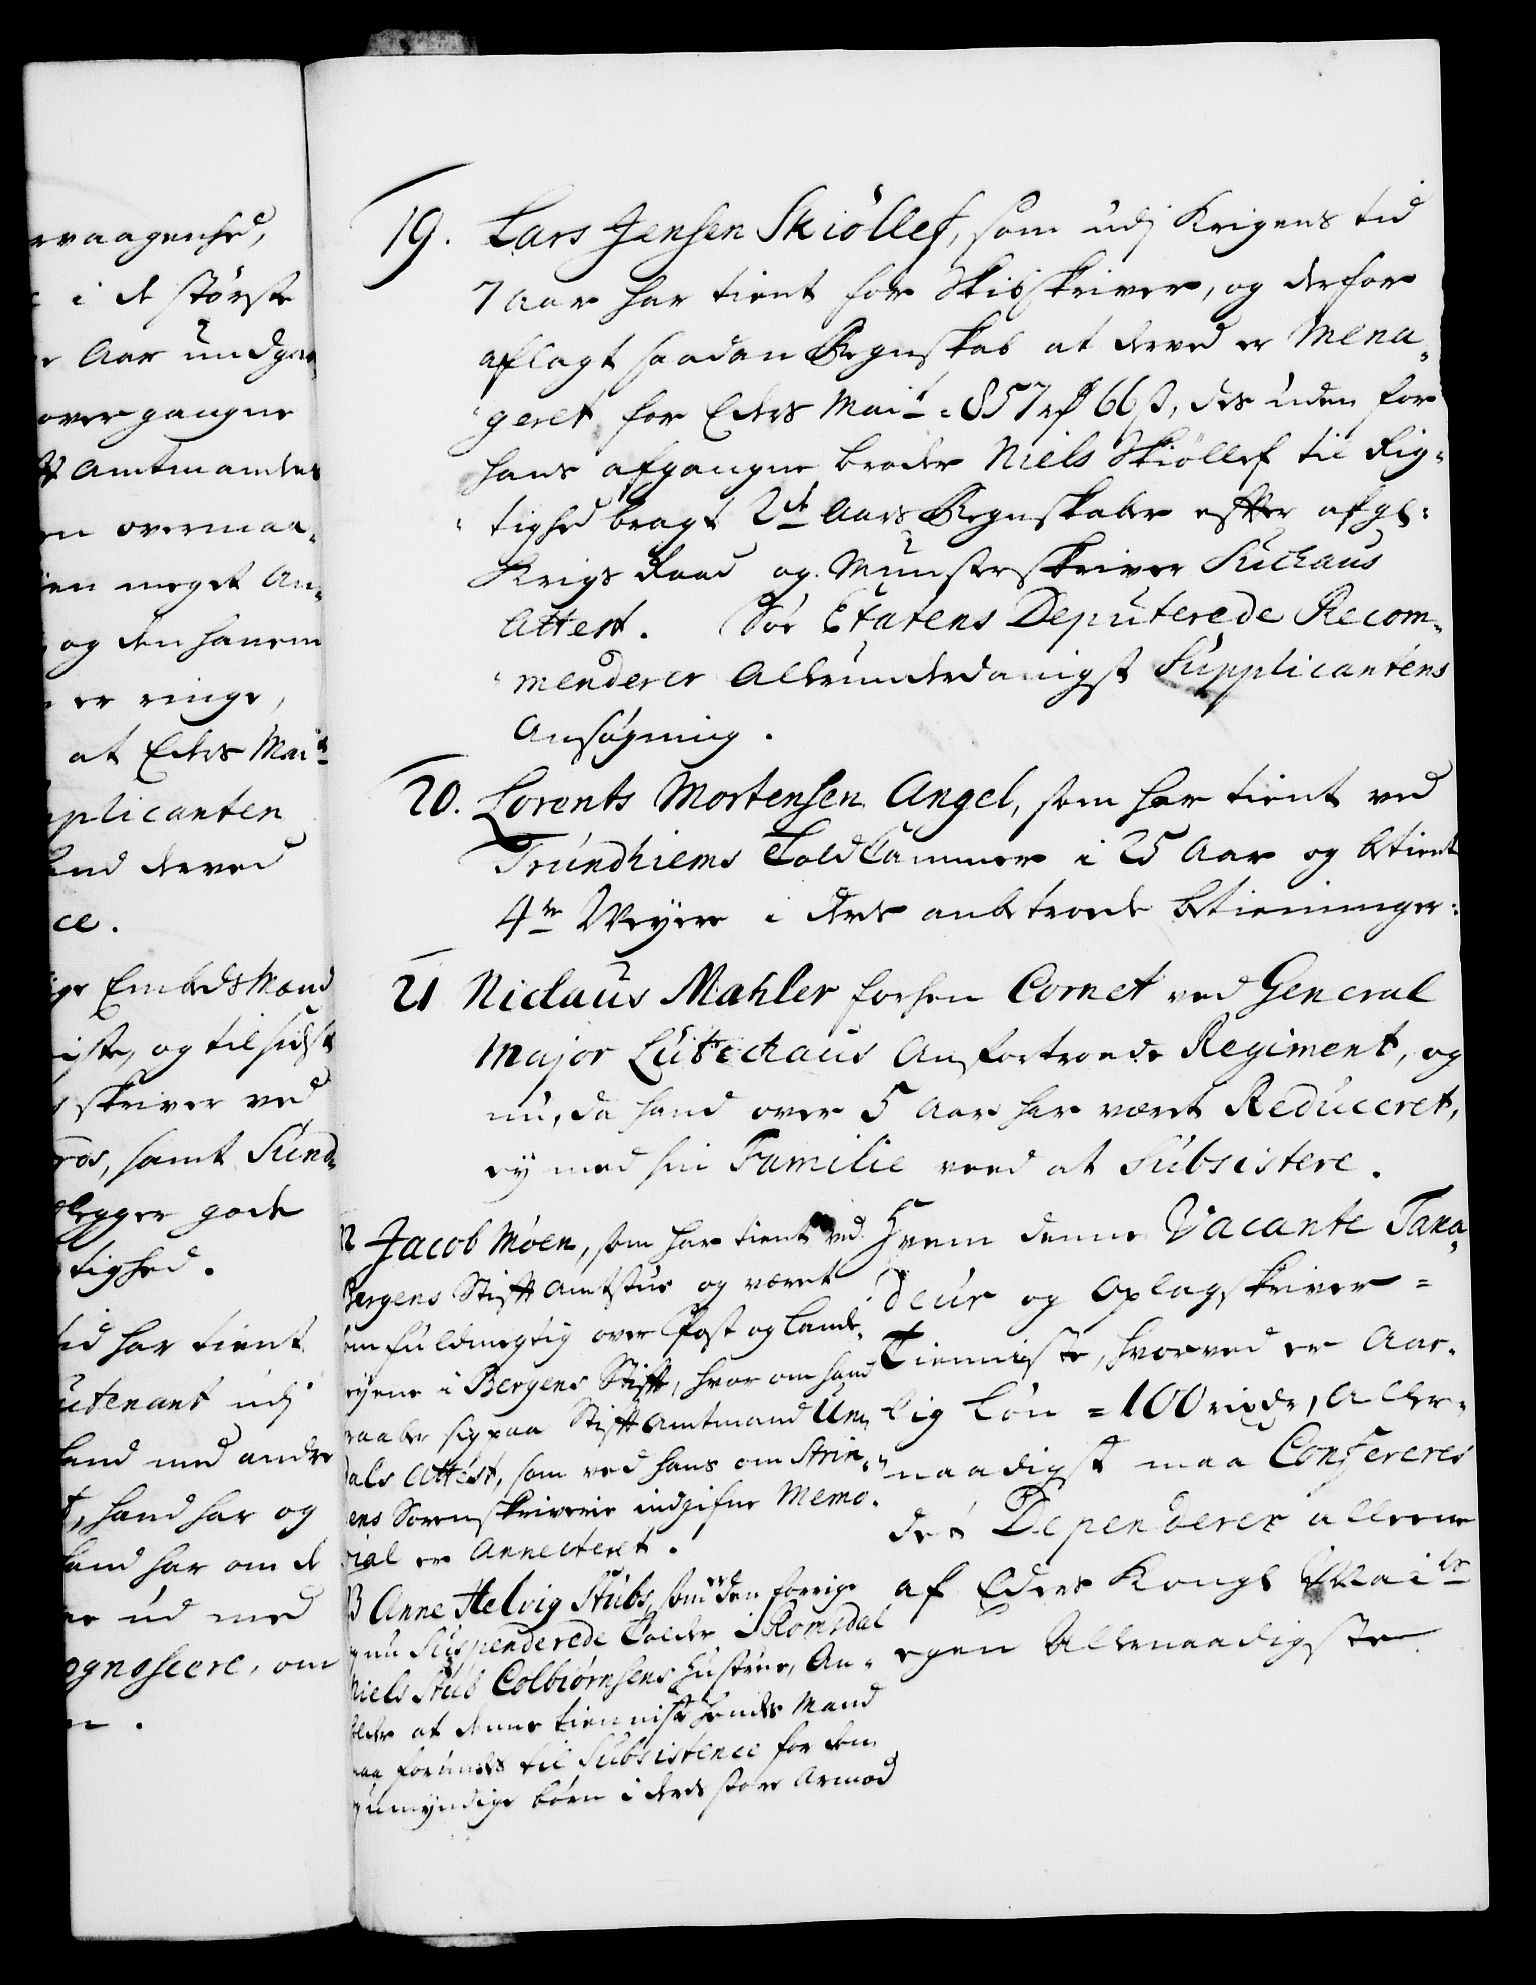 rvaagenhed,
i de største
Aar undgaa,
overgangne
Amtmandens
en overmaa,
ien meget An,
og den hanem
er ringe,
at Eders Mai:t
plicanten
hand derved
ce.
ige EmbedsMænd
iste, og til sidst
skriver ved
ros, samt Sund,
legger gode
tighed.
tid har tient
utenant udj
hand med andre
t, hand har og
hand har om de
ud med
ognoscere, om
19. Lars Jensen Skiöllef, som udj Krigens tid
7 Aar har tient for Skibskriver, og derfor
aflagt saadan Regnskab at derved er Mena,
geret for Eders Mai:t 857 rd 66 s, des uden for
hans afgangne broder Niels Skiöllef til Rig=
tighed bragt 2de Aars Regnskaber effter afg:
Krigs Raad og Munsterskriver Suckaus
Attest. Søe Etatens Deputerede Recom,
menderer Allerunderdanigst Supplicantens
Ansøgning.
20. Lorents Mortensen Angel, som har tient ved
Trundhiems Toldkammer i 25 Aar og betient
4re Weyere i deres anbetroede betieninger:
21 Niclaus Mahler forhen Cornet ved General
Major Lützchaus Anfortroede Regiment, og
nu, da hand over 5 Aar har været Reduceret,
ey med sin Familie veed at Subsistere.
Jacob Moen, som har tient ved
Bergens Stifft Amtstue og været
som fuldmegtig over Post og Lande,
veyene i Bergens Stifft, hvor om hand
raaber sig paa Stifft Amtmand Un,
dals Attest, som ved hans om Strin,
dens Sorenskriverie indgifne Memo,
rial er Annecteret.
Anne Helvig Stubs, som den forrige
nu Suspenderede Tolder i Romsdal
Niels Stub Colbiørnsens Hustrue, An,
holder at denne tienniste hendes Mand
maa forundes til Subsistence for dem
umyndige børn i deres store Armod
Hvem denne Vacante Tara,
deur og Oplagskriver=
Tienniste, hvorved er Aar,
lig Løn =100 rixdr, Aller,
naadigst maa Confereres
det Dependerer alleene
af Eders Kongl Mai:ts
egen Allernaadigste